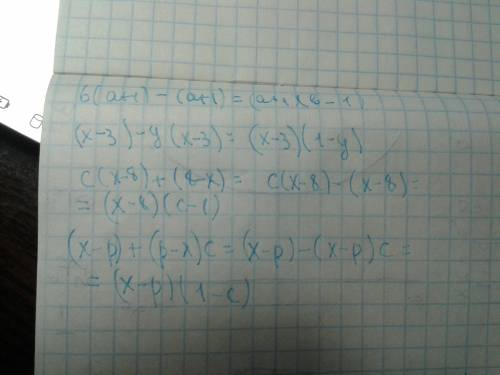 b(a+1) - (a+1) = (a+1)(b-1)
(x-3) - y(x-3) = (x-3)(1-y)
c(x-8) + (8-x) = c(x-8) - (x-8) =
= (x-8)(c-1)
(x-p) + (p-x)c = (x-p) - (x-p)c =
= (x-p)(1-c)